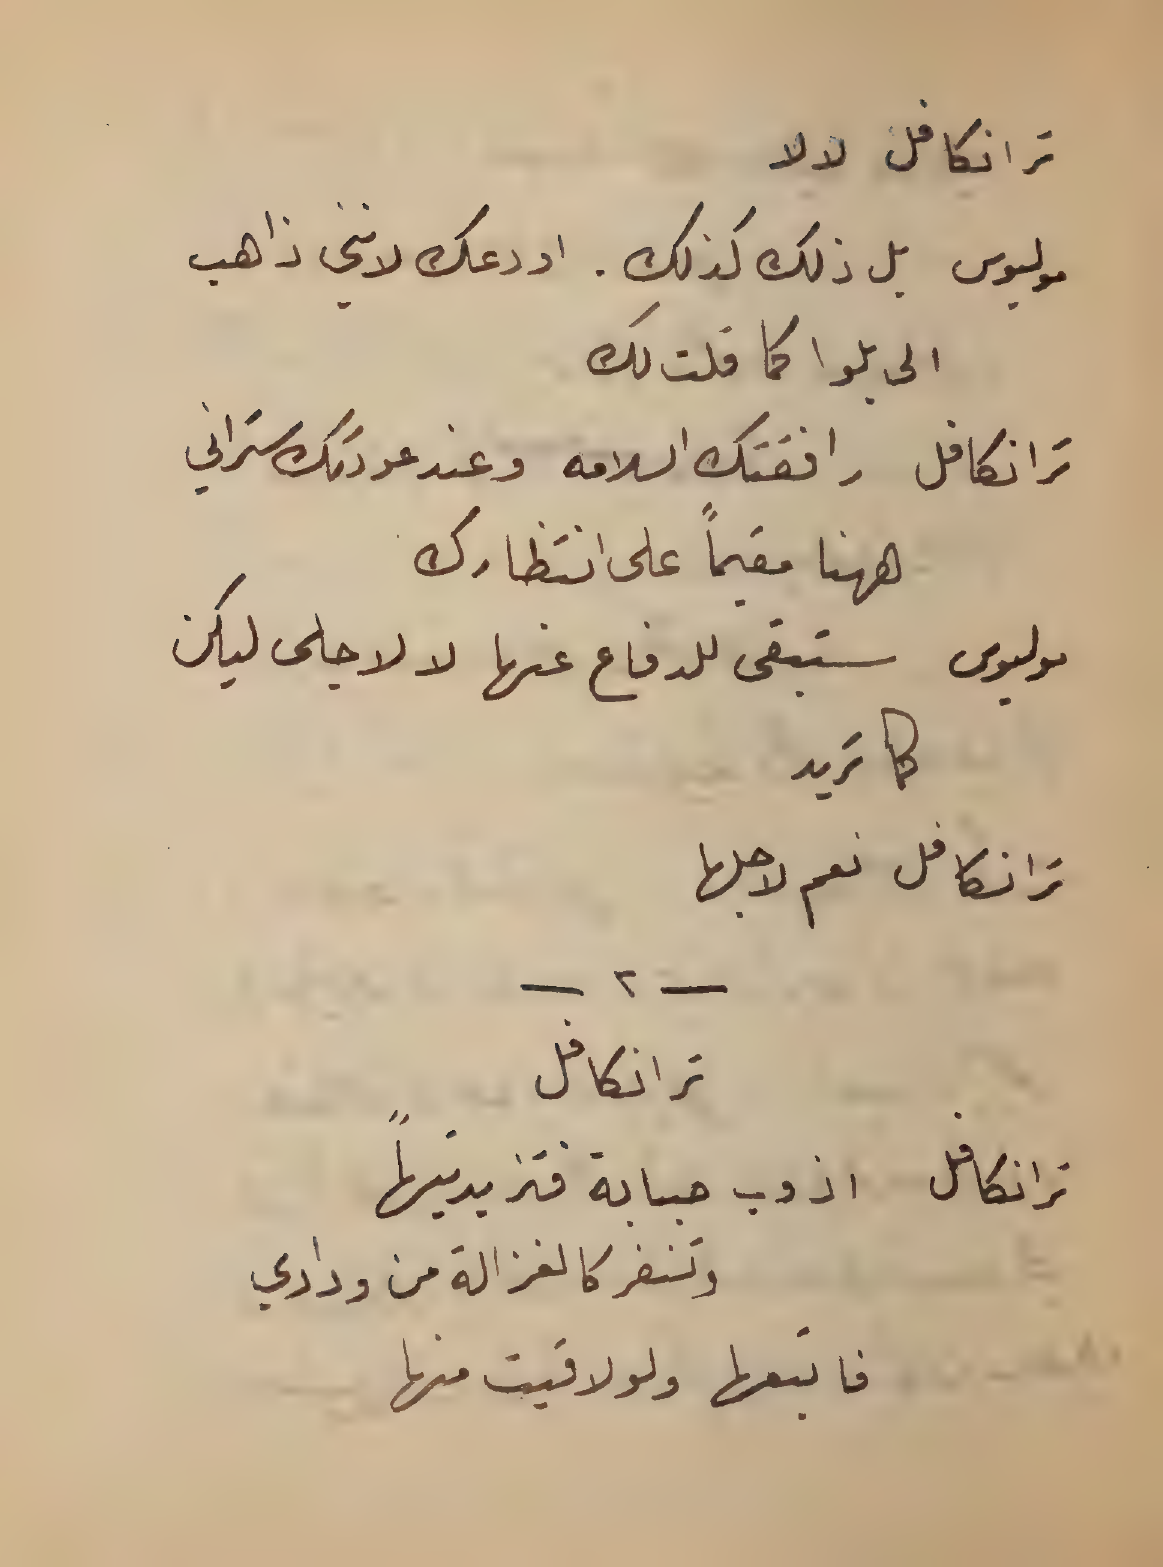 ترانكافل لا لا
موليوس بل ذلك كذلك . اودعك لانني ذاهب
الى بلوا كما قلت لك
ترانكافل رافقتك السلامه وعند عودتك ستراني
ههنا مقيماً على انتظارك
موليوس ستبقى للدفاع عنها لا لاجلى ليكن
كما تريد
ترانكافل نعم لاجلها
— ٢ —
ترانكافل
ترانكافل اذوب صبابة فتزيد تيهاً
وتنفر كالغزالة من ودادي
فاتبعها ولو لاقيت منها